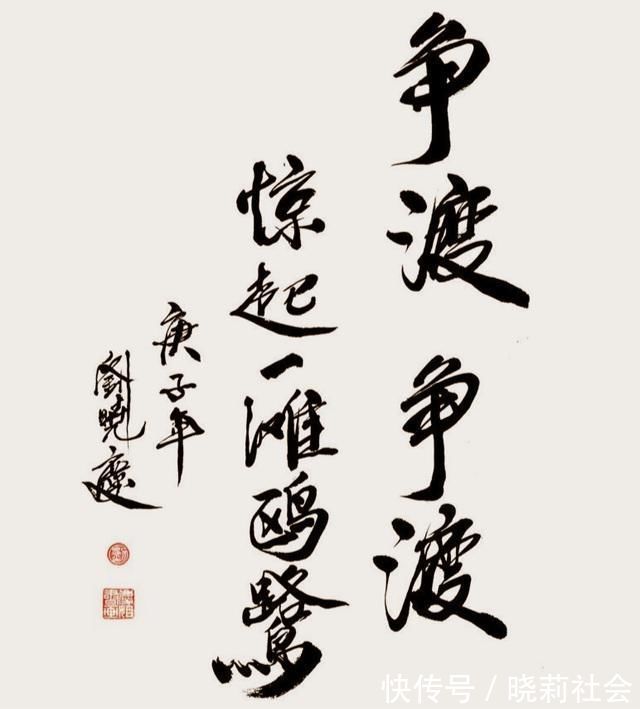 争渡争渡
惊起一滩鸥鹭
庚子年
劉曉慶
快传号/晓莉社会